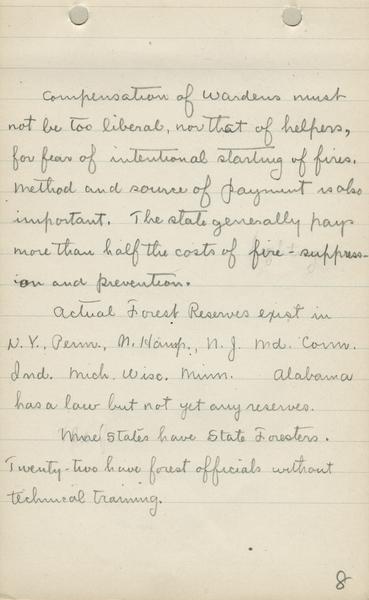 Compensation of Wardens must
not be too liberal, nor that of helpers,
for fear of intentional starting of fires.
Method and source of payment is also
important. The state generally pays
more than half the costs of fire-suppress-
ion and prevention.
Actual Forest Reserves exist in
N.Y., Penn., N. Hamp., N. J. Md. Conn.
Ind. Mich. Wisc. Minn. Alabama
has a law but not yet any reserves.
Nine States have State Foresters.
Twenty-two have forest officials without
technical training.
8